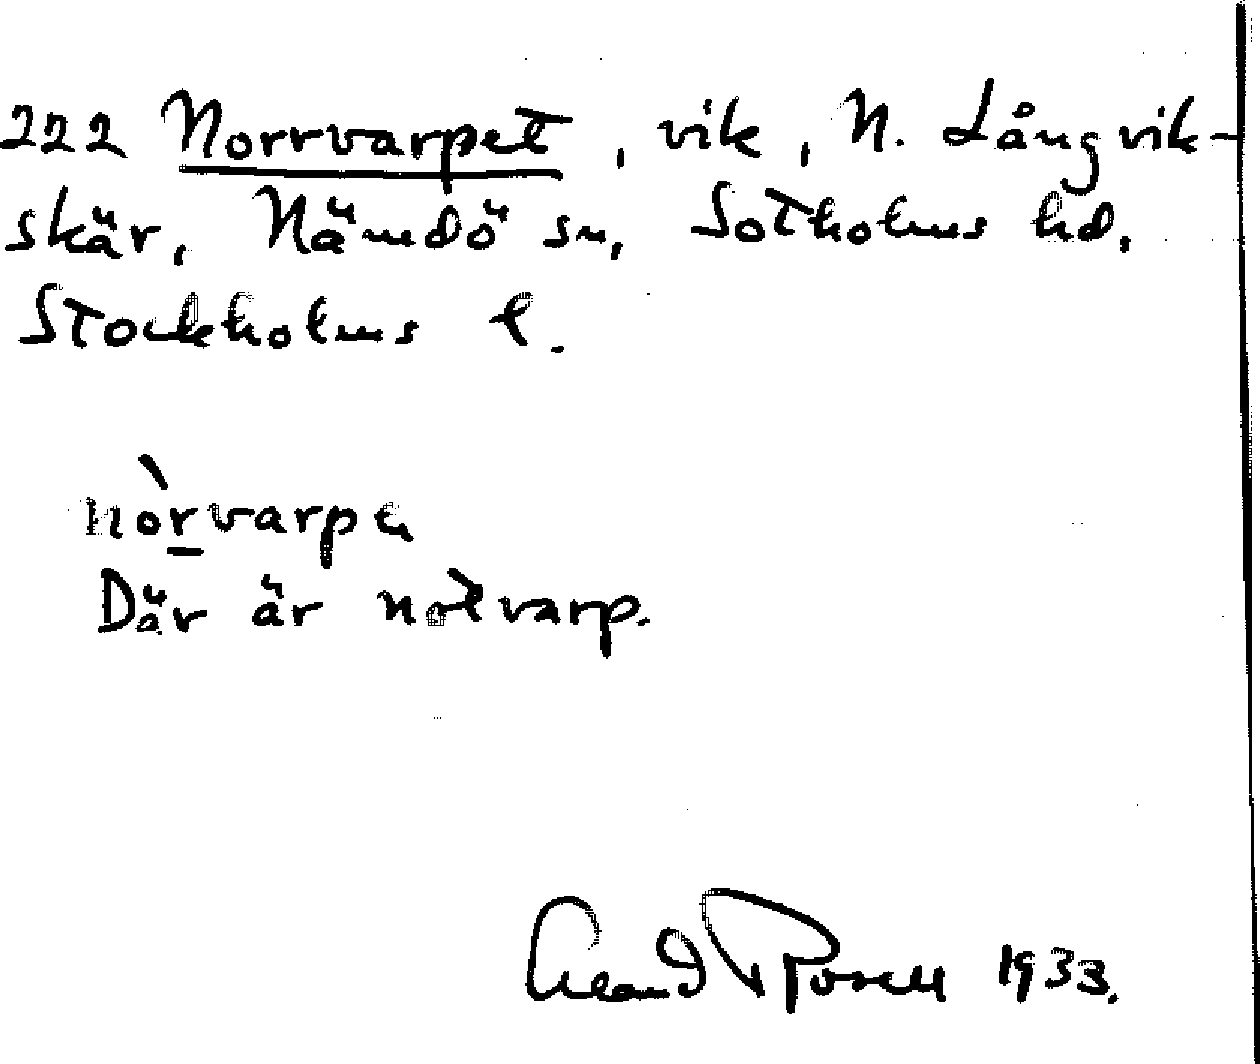 222 Norrvarpet, vik, N. Långvik-
skär, Nämdö sn, Sotholms hd,
Stockholms l.
nòrvarpe
Där är notvarp.
1933.